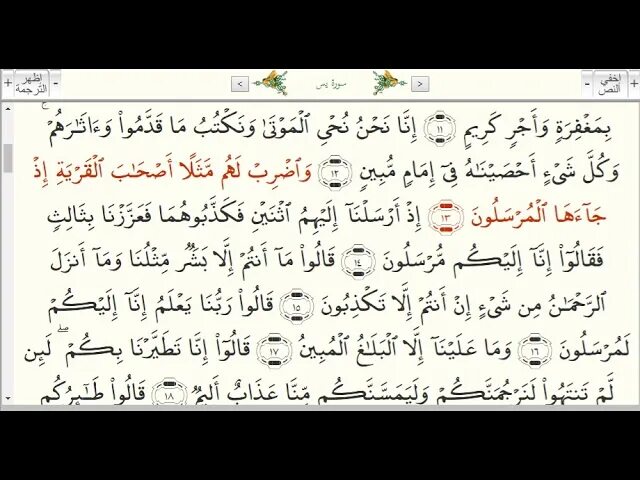 إخفي النص
سورة يس
إظهر الترجمة
بِمَغْفِرَةٍ وَأَجْرٍ كَرِيمٍ ١١ إِنَّا نَحْنُ نُحْيِ ٱلْمَوْتَىٰ وَنَكْتُبُ مَا قَدَّمُوا۟ وَءَاثَـٰرَهُمْ ۚ
وَكُلَّ شَىْءٍ أَحْصَيْنَـٰهُ فِىٓ إِمَامٍ مُّبِينٍ ١٢ وَٱضْرِبْ لَهُم مَّثَلًا أَصْحَـٰبَ ٱلْقَرْيَةِ إِذْ
جَآءَهَا ٱلْمُرْسَلُونَ ١٣ إِذْ أَرْسَلْنَآ إِلَيْهِمُ ٱثْنَيْنِ فَكَذَّبُوهُمَا فَعَزَّزْنَا بِثَالِثٍ
فَقَالُوٓا۟ إِنَّآ إِلَيْكُم مُّرْسَلُونَ ١٤ قَالُوا۟ مَآ أَنتُمْ إِلَّا بَشَرٌ مِّثْلُنَا وَمَآ أَنزَلَ
ٱلرَّحْمَـٰنُ مِن شَىْءٍ إِنْ أَنتُمْ إِلَّا تَكْذِبُونَ ١٥ قَالُوا۟ رَبُّنَا يَعْلَمُ إِنَّآ إِلَيْكُمْ
لَمُرْسَلُونَ ١٦ وَمَا عَلَيْنَآ إِلَّا ٱلْبَلَـٰغُ ٱلْمُبِينُ ١٧ قَالُوٓا۟ إِنَّا تَطَيَّرْنَا بِكُمْ ۖ لَئِن
لَّمْ تَنتَهُوا۟ لَنَرْجُمَنَّكُمْ وَلَيَمَسَّنَّكُم مِّنَّا عَذَابٌ أَلِيمٌ ١٨ قَالُوا۟ طَـٰٓئِرُكُم